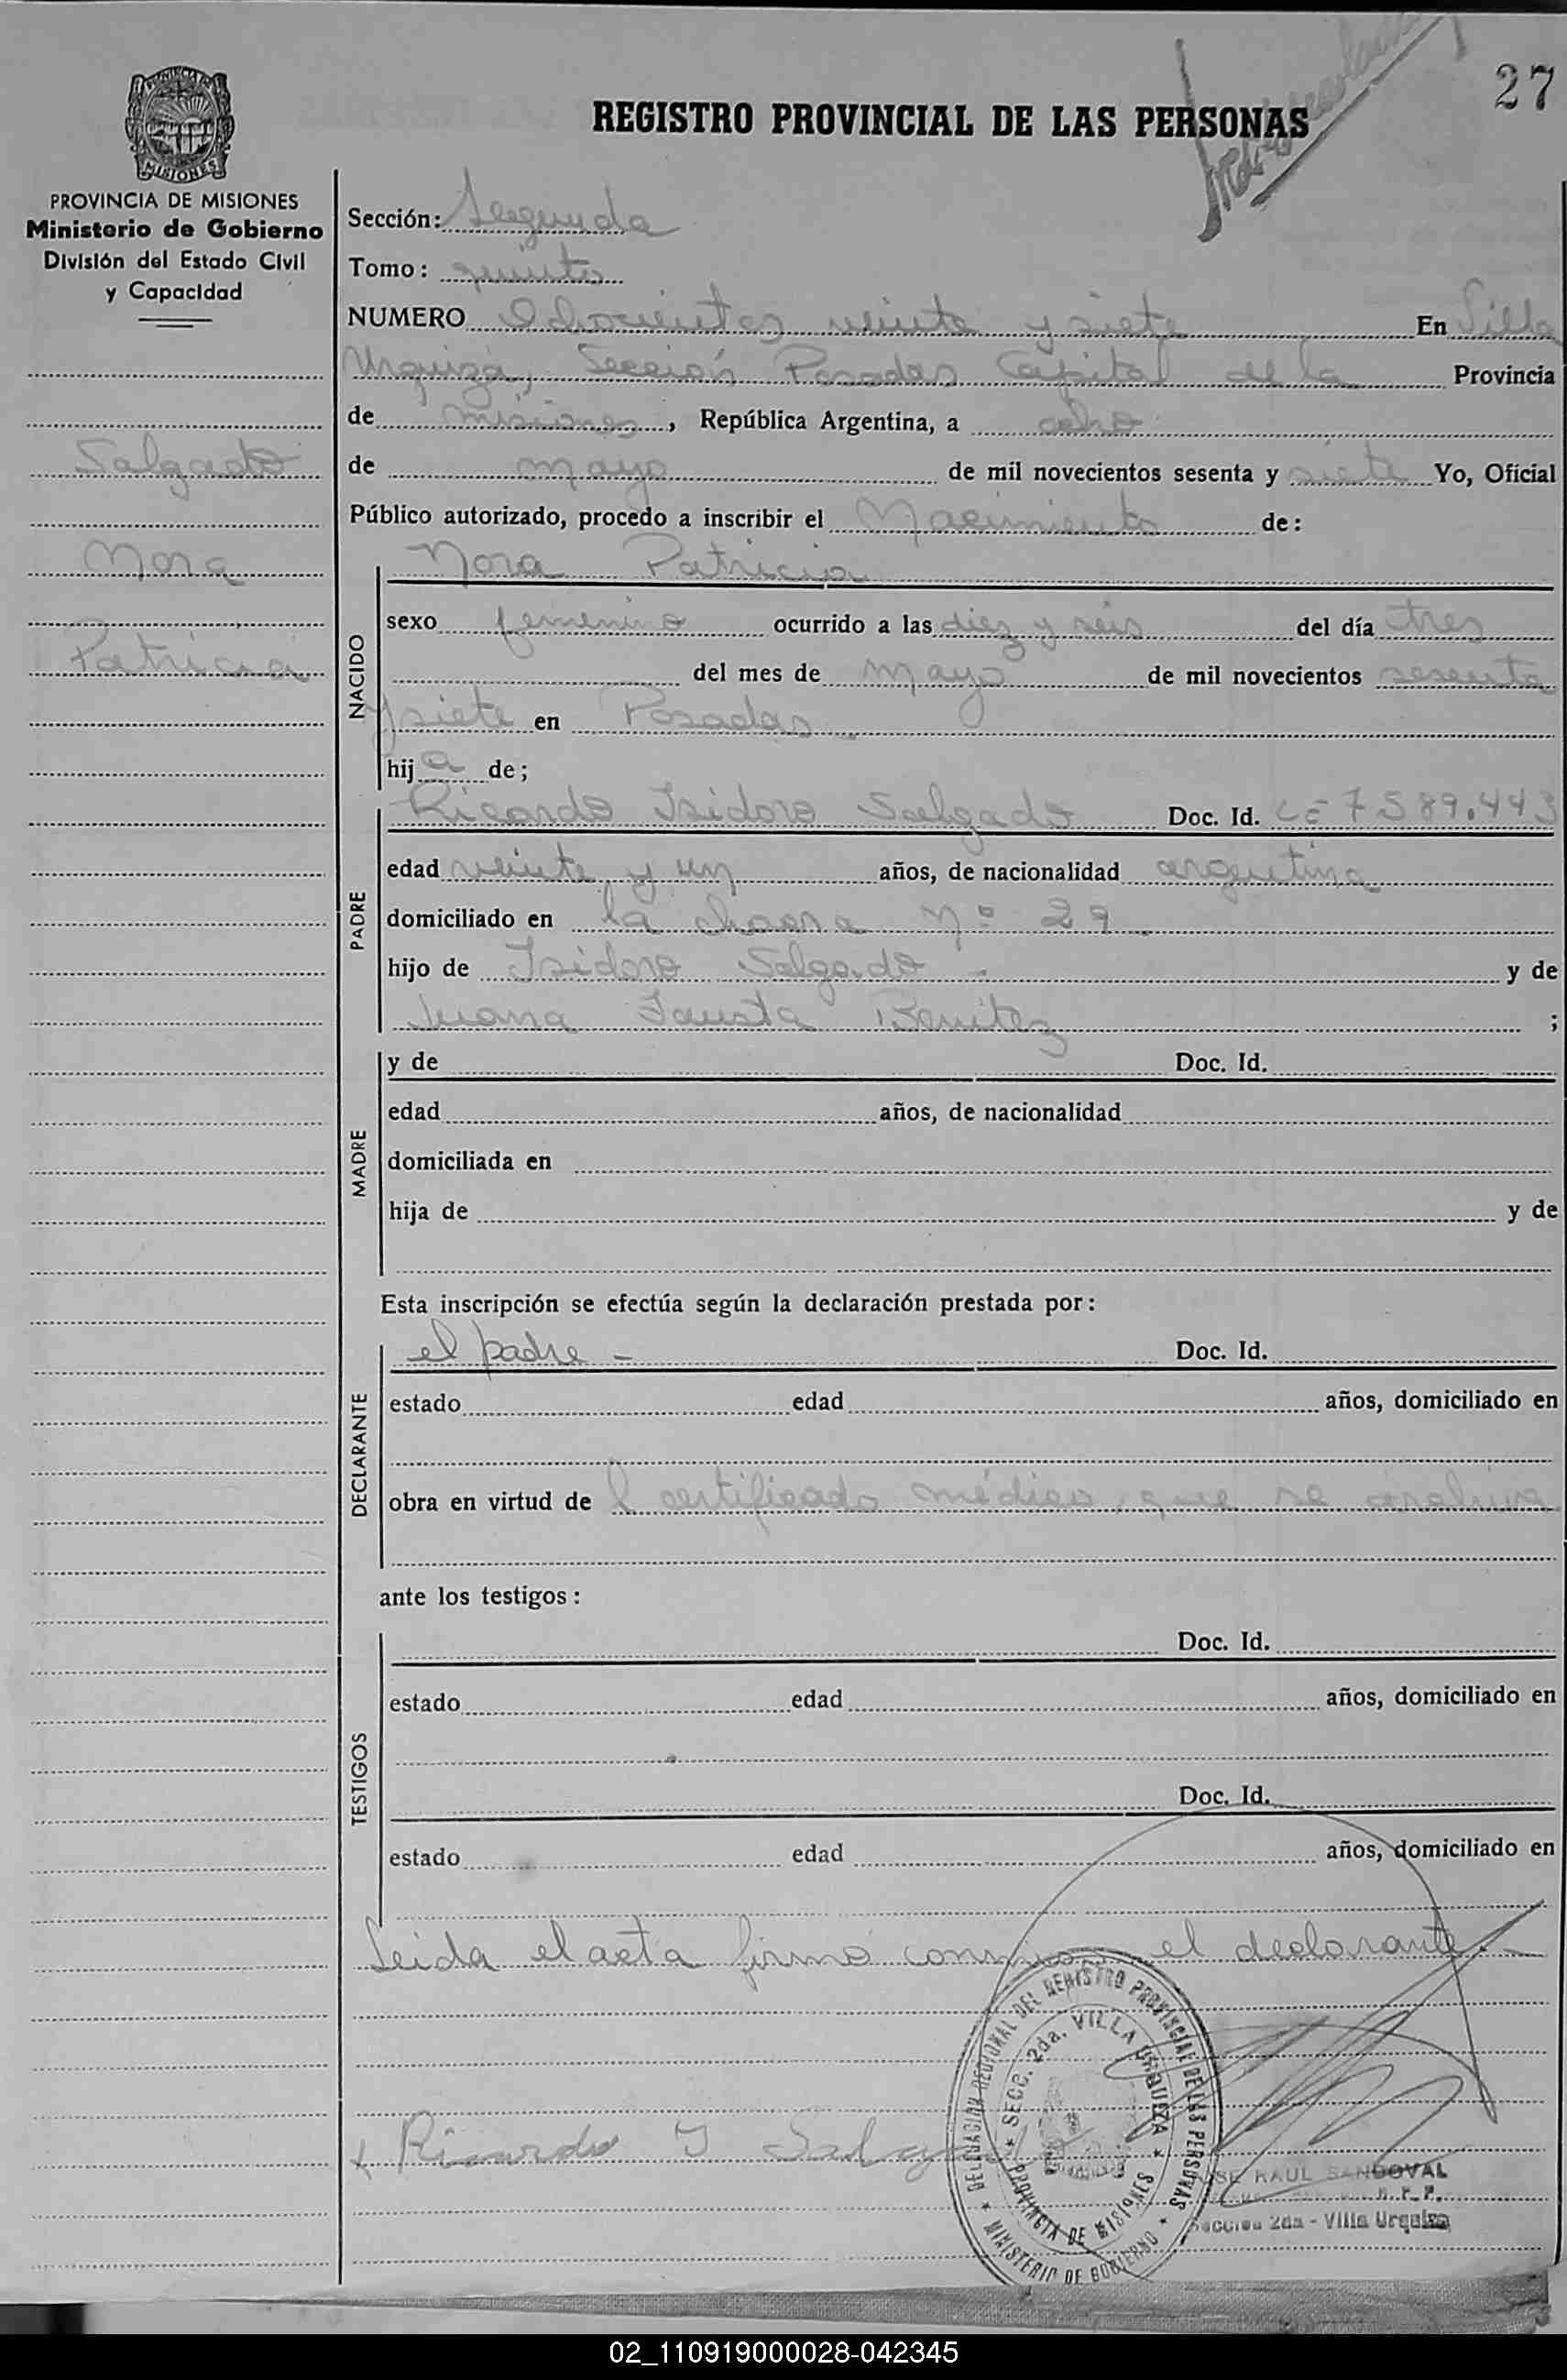 27
REGISTRO PROVINCIAL DE LAS PERSONAS
PROVINCIA DE MISIONES
MISIONES
PROVINCIA DE MISIONES
Ministerio de Gobierno
División del Estado Civil
y Capacidad
Salgado
Nora
Patricia
Sección: Segunda
Tomo: quinto
NUMERO Ochocientos veinte y siete En Villa
Urquiza, Sección Posadas Capital de la Provincia
de Misiones, República Argentina, a ocho
de mayo de mil novecientos sesenta y siete Yo, Oficial
Público autorizado, procedo a inscribir el Nacimiento de:
NACIDO
Nora Patricia
sexo femenino ocurrido a las diez y seis del día tres
del mes de mayo de mil novecientos sesenta
y siete en Posadas
hija de;
PADRE
Ricardo Isidoro Salgado Doc. Id. LE 7589.443
edad veinte y un años, de nacionalidad argentina
domiciliado en la chacra Nº 29
hijo de Isidoro Salgado - y de
Juana Fausta Benitez ;
MADRE
y de Doc. Id.
edad años, de nacionalidad
domiciliada en
hija de y de
Esta inscripción se efectúa según la declaración prestada por:
DECLARANTE
el padre - Doc. Id.
estado edad años, domiciliado en
obra en virtud de l certificado médico, que se archiva
ante los testigos:
TESTIGOS
Doc. Id.
estado edad años, domiciliado en
Doc. Id.
estado edad años, domiciliado en
Leida el acta firma conmigo el declarante. -
Ricardo I Salgado
DELEGACION REGIONAL DEL REGISTRO PROVINCIAL DE LAS PERSONAS
SECC. 2da. VILLA URQUIZA
PROVINCIA DE MISIONES
MINISTERIO DE GOBIERNO
RAUL SANDOVAL
R.P.P.
Sección 2da - Villa Urquiza
02_110919000028-042345